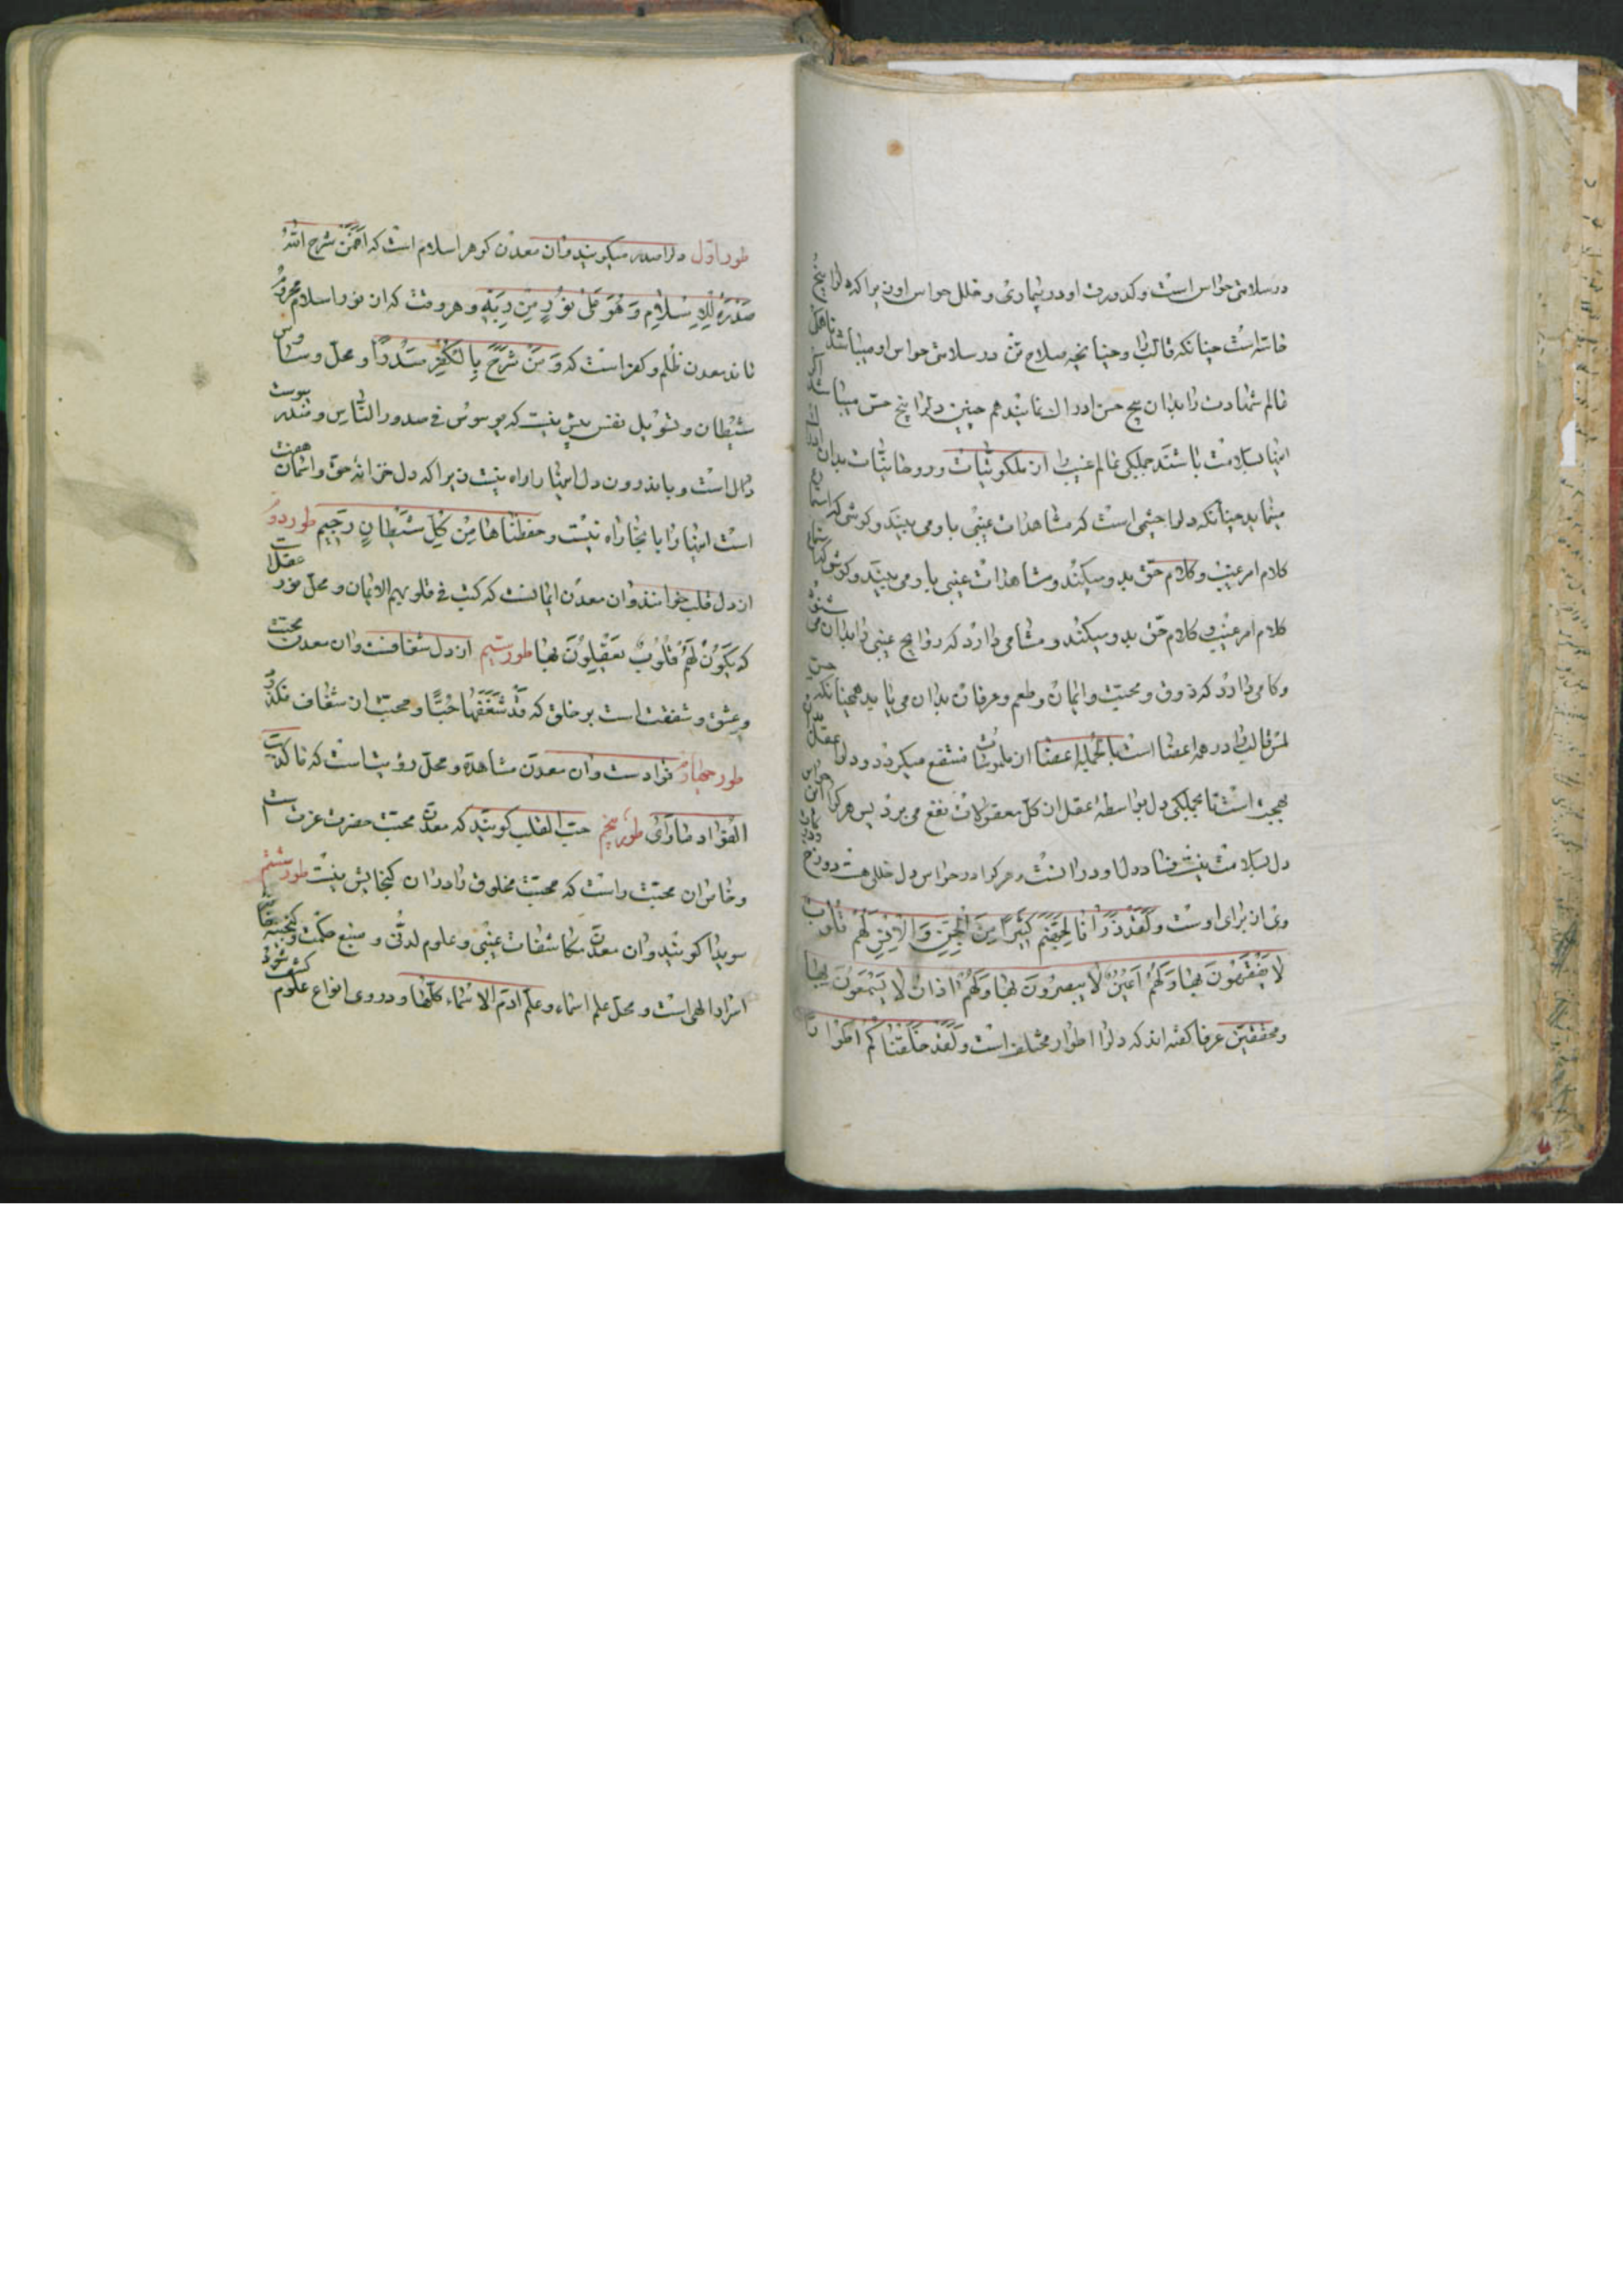 در سلامتی حواس است و کدورت او در بیماری و خلل حواس او زیرا که دلرا پنج
حاسّه است چنانکه قالب را و چنانچه صلاح تن در سلامتی حواس او میباشد تا همکل
عالم شهادت را بدان پنج حسّ ادراک نماید هم چنین دلرا پنج حسّ میباشد اکر
اینها بسلامت باشند جملکی عالم غیب را از ملکوتیات و روحانیّات بدان ادراک
مینماید چنانکه دلرا چشمی است که مشاهدات غیبی باو می بیند و کوشی که استماع
کلام امر غیب و کلام حق بدو میکند و مشاهدات غیبی باو می بیند و کوشی که استماع
کلام امر غیب و کلام حقّ بدو میکند و مشامی دارد که روایح غیبی را بدان می شنود
و کامی دارد که ذوق و محبّت و ایمان و طعم و عرفان بدان می یابد همچنانکه حسّ
لمس قالب را در همه اعضا است تا بجمله اعضا از ملموسات منتفع میکردد و دلرا عقل بدان
بهجت است تا بجملکی دل بواسطهٔ عقل از کلّ معقولات نفع می برد پس هر کرا این حواس
دل بسلامت نیست فساد دل او در آنست و هر کرا در حواس دل خللی هست دوزخ و درکات
وی از برای اوست وَلَقَدْ ذَرَأْنَا لِجَهَنَّمَ كَثِيرًا مِنَ الْجِنِّ وَالْاِنْسِ لَهُمْ قُلُوبٌ
لَا يَفْقَهُونَ بِهَا وَلَهُمْ اَعْيُنٌ لَا يُبْصِرُونَ بِهَا وَلَهُمْ اٰذَانٌ لَا يَسْمَعُونَ بِهَا
و محقّقین عرفا کفته اند که دلرا اطوار مختلف است وَلَقَدْ خَلَقْنَاكُمْ اَطْوَارًا
طور اوّل دلرا صدر میکویند و آن معدن کوهر اسلام است که اَفَمَنْ شَرَحَ اللّٰهُ
صَدْرَهُ لِلْاِسْلَامِ وَ هُوَ عَلیٰ نُورٍ مِنْ رَبِّهِ و هر وقت که از نور اسلام محروم
ماند معدن ظلم و کفر است که وَ مَنْ شَرَحَ بِالْكُفْرِ صَدْرًا و محلّ وساوس
شیطان و تسویل نفس بیش نیست که یوسوس فی صدور الناس و صدر پوست
دل است و باندرون دل اینها را راه نیست زیرا که دل خزانهٔ حقّ و آسمان صفت
است اینها را بانجا راه نیست و حفظناها مِنْ كُلِّ شَيْطَانٍ رَجِيمٍ طور دوم
از دل قلب خوانند و آن معدن ایمانست که کتب فی قلوبهم الایمان و محلّ نور عقل است
که يَكُونُ لَهُمْ قُلُوبٌ يَعْقِلُونَ بِهَا طور سیم از دل شغافست و آن معدن محبّت
و عشق و شفقت است بر خلق که قَدْ شَغَفَهَا حُبًّا و محبّت از شغاف نکذرد
طور چهارم فؤادست و آن معدن مشاهده و محلّ رؤیت است که ما کذبت
الفؤاد ما رأی طور پنجم حبّة القلب کویند که معدن محبّت حضرت عزت است
و خاصان محبّت راست که محبّت مخلوق را در آن کنجایش نیست طور ششم
سویدا کویند و آن معدن مکاشفات غیبی و علوم لدنّی و منبع حکمت و کنجینه خانه
اسرار الهی است و محلّ علم اسماء وَ علّم آدَمَ الاسماء کلّها و در وی انواع علوم کشف شود